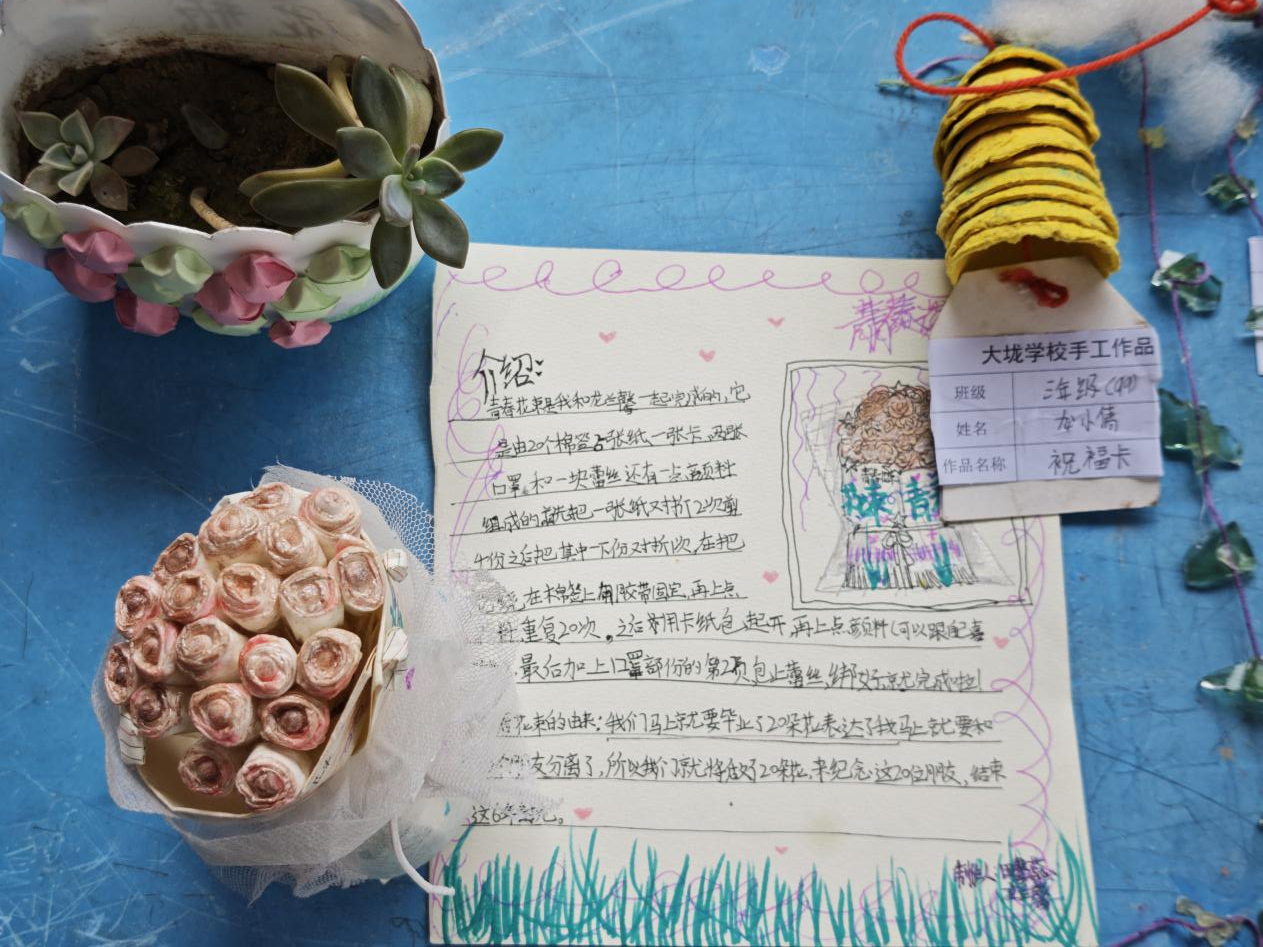 青春
介绍:
青春花束是我和龙兰馨一起完成的,它
是由20个棉签5张纸一张卡,两张
口罩和一块蕾丝还有一点颜料
组成的首先把一张纸对折2次剪
4份之后把其中一份对折次,在把
在棉签上用胶带固定,再上点
重复20次。之后用卡纸包起开,再上点颜料(可以跟配喜
最后加上口罩部份的第2页包上蕾丝,绑好就完成啦!
花束的由来:我们马上就要毕业了20朵花表达了我马上就要和
友分离了,所以我们就将做了20朵花,来纪念这20位朋友,结束
这6年
制作人
花束 青
大垅学校手工作品
班级 三年级(
姓名 小倩
作品名称 祝福卡